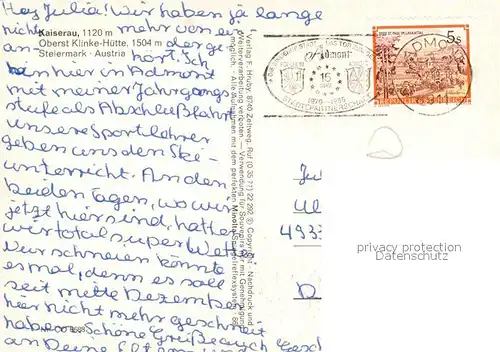 Hey Julia! Wir haben ja lange
nicht mehr von ei
Kaiserau, 1120 m
Oberst Klinke-Hütte, 1504 m
Steiermark · Austria
an- der ge
hört. Ich
bin hier in Admont
mit meiner Jahrgangs
stufe als Abschlußfahrt
unsere Sportlehrer
geben uns den Ski-
unterricht. An den
beiden Tagen, wo wir
jetzt hier sind, hatten
wir total super Wetter
Nur schneien könnte
es mal, denn es soll
seit mitte Dezember
hier nicht mehr geschneit
haben. Schöne Grüße auch
an Deine Eltern und
Verlag F. Hruby, 8740 Zeltweg, Ruf (0 35 77) 22 292 © Copyright - Nachdruck und
Weiterverarbeitung verboten. — Verwendung für Souvenirs nur mit Genehmigung
möglich. Alle Aufnahmen mit dem perfekten Minolta-Spiegelreflexsystem
Admont
15
1970-1985
STÄDTEPARTNERSCHAFT
STIFT ST. PAUL IM LAVANTTAL
5s
REPUBLIK ÖSTERREICH
493
D
privacy protection